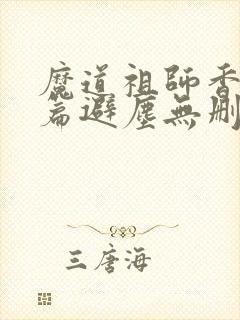 魔道祖師香
篇避塵無刪
三唐海